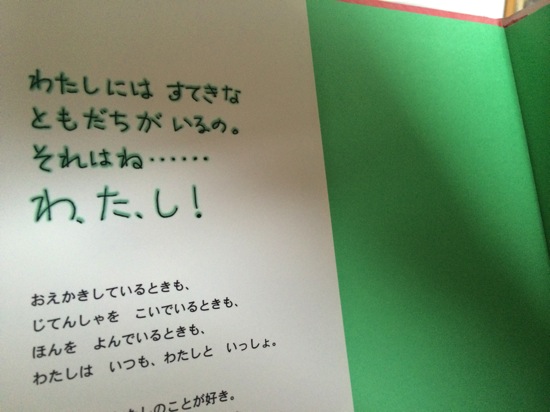 わたしには すてきな
ともだちが いるの。
それはね……
わ、た、し！
おえかきしているときも、
じてんしゃを こいでいるときも、
ほんを よんでいるときも、
わたしは いつも、わたしと いっしょ。
たしのことが好き。